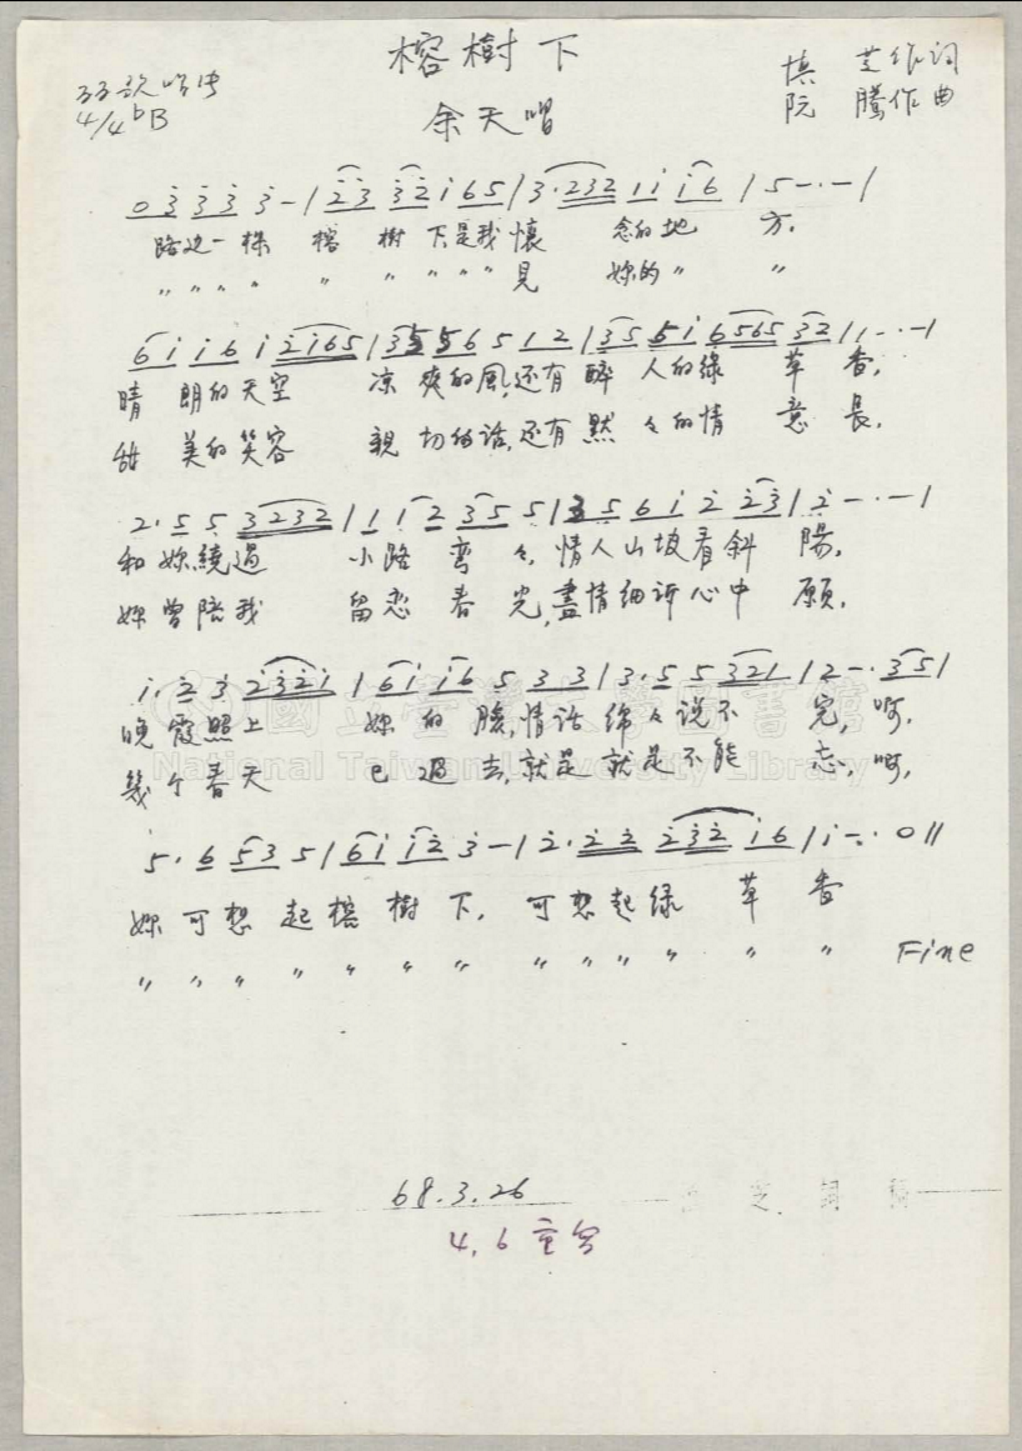 榕樹下
慎芝作词
4/4 bB
余天唱
阮騰作曲
0 3 3 3 3 - | 2 3 3 2 1 6 5 | 3 · 2 3 2 1 1 1 6 | 5 - · - |
路边一株 榕樹下是我懷念的地方.
〃〃〃〃 〃 〃〃〃〃 見妳的〃 〃
6 1 1 6 1 2 1 6 5 | 3 5 5 6 5 1 2 | 3 5 5 1 6 5 6 5 3 2 | 1 - · - |
晴朗的天空 凉爽的風,还有醉人的綠草香,
甜美的笑容 親切的話,还有默々的情意長.
2 · 5 5 3 2 3 2 | 1 1 2 3 5 5 | 3 5 6 1 2 2 3 | 2 - · - |
和妳繞過 小路弯々,情人山坡看斜陽,
妳曾陪我 留恋春光,盡情细訴心中願.
1 · 2 3 2 3 2 1 | 6 1 1 6 5 3 3 | 3 · 5 5 3 2 1 | 2 - · 3 5 |
晚霞照上 妳的臉,情話綿々说不完,啊,
幾个春天 已過去,就是就是不能忘,啊,
5 · 6 5 3 5 | 6 1 1 2 3 - | 2 · 2 2 2 3 2 1 6 | 1 - · 0 ||
妳可想起榕樹下, 可想起绿草香
〃 〃 〃 〃 〃 〃 〃 〃 〃 〃 〃 〃 〃 Fine
國立臺灣大學圖書館
National Taiwan University Library
68.3.26
芝詞稿
4.6重写